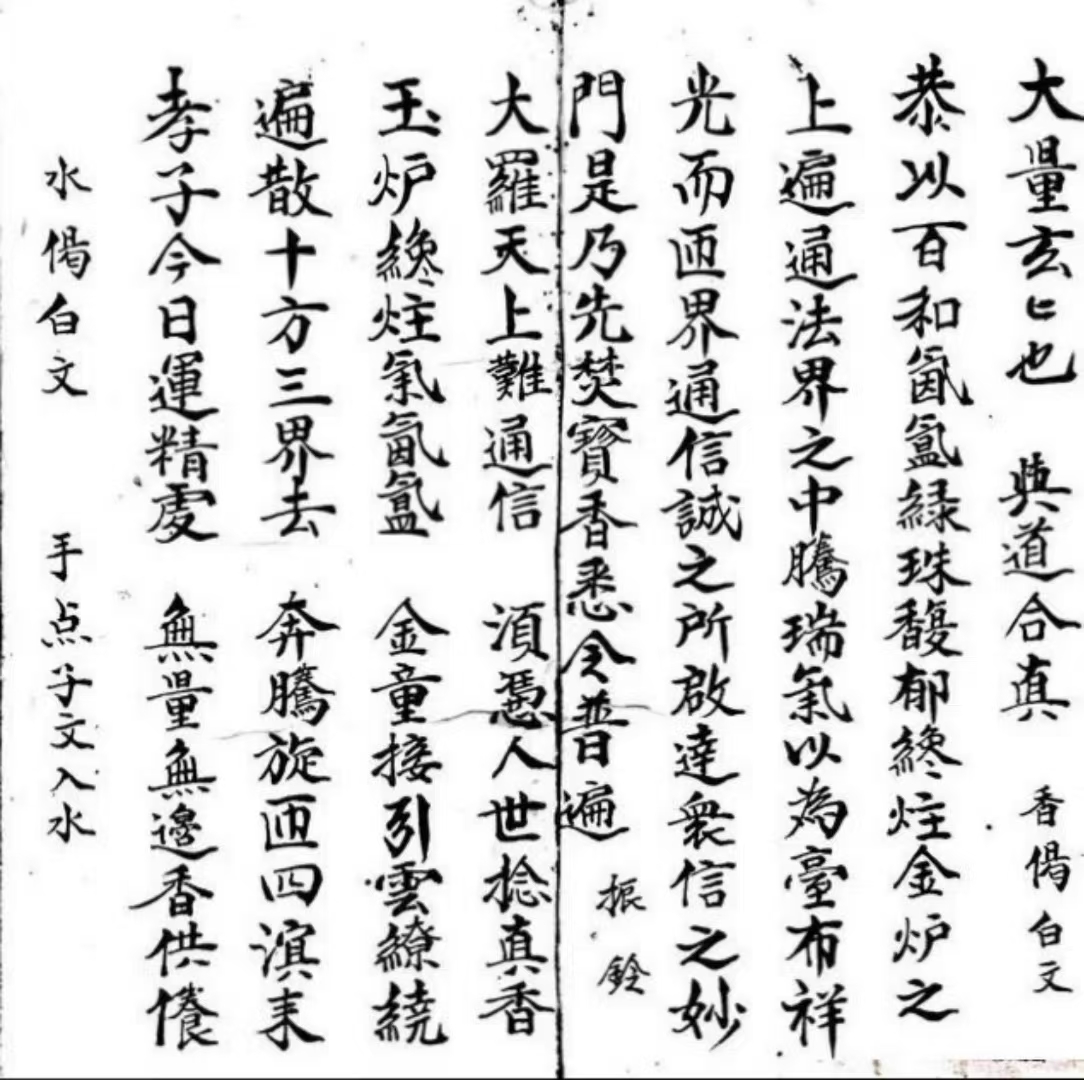 大量玄〻也　與道合真　香偈白文
恭以百和氤氳緑珠馥郁纔炷金炉之
上遍通法界之中騰瑞氣以為臺布祥
光而匝界通信誠之所啟達衆信之妙
門是乃先焚寳香悉令普遍　振鈴
大羅天上難通信　須憑人世捻真香
玉炉纔炷氣氤氳　金童接引雲繚繞
遍散十方三界去　奔騰旋匝四溟来
孝子今日運精虔　無量無邊香供養
水偈白文　手点子文入水